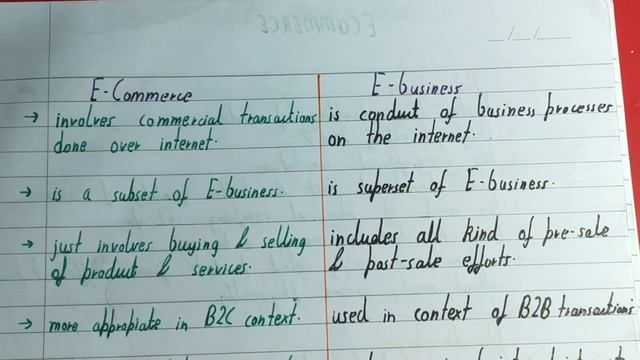 E-Commerce
E-business
→ involves commercial transactions
done over internet.
is conduct of business processes
on the internet.
→ is a subset of E-business.
is superset of E-business.
→ just involves buying & selling
of product & services.
includes all kind of pre-sale
& post-sale efforts.
→ more appropiate in B2C context.
used in context of B2B transactions